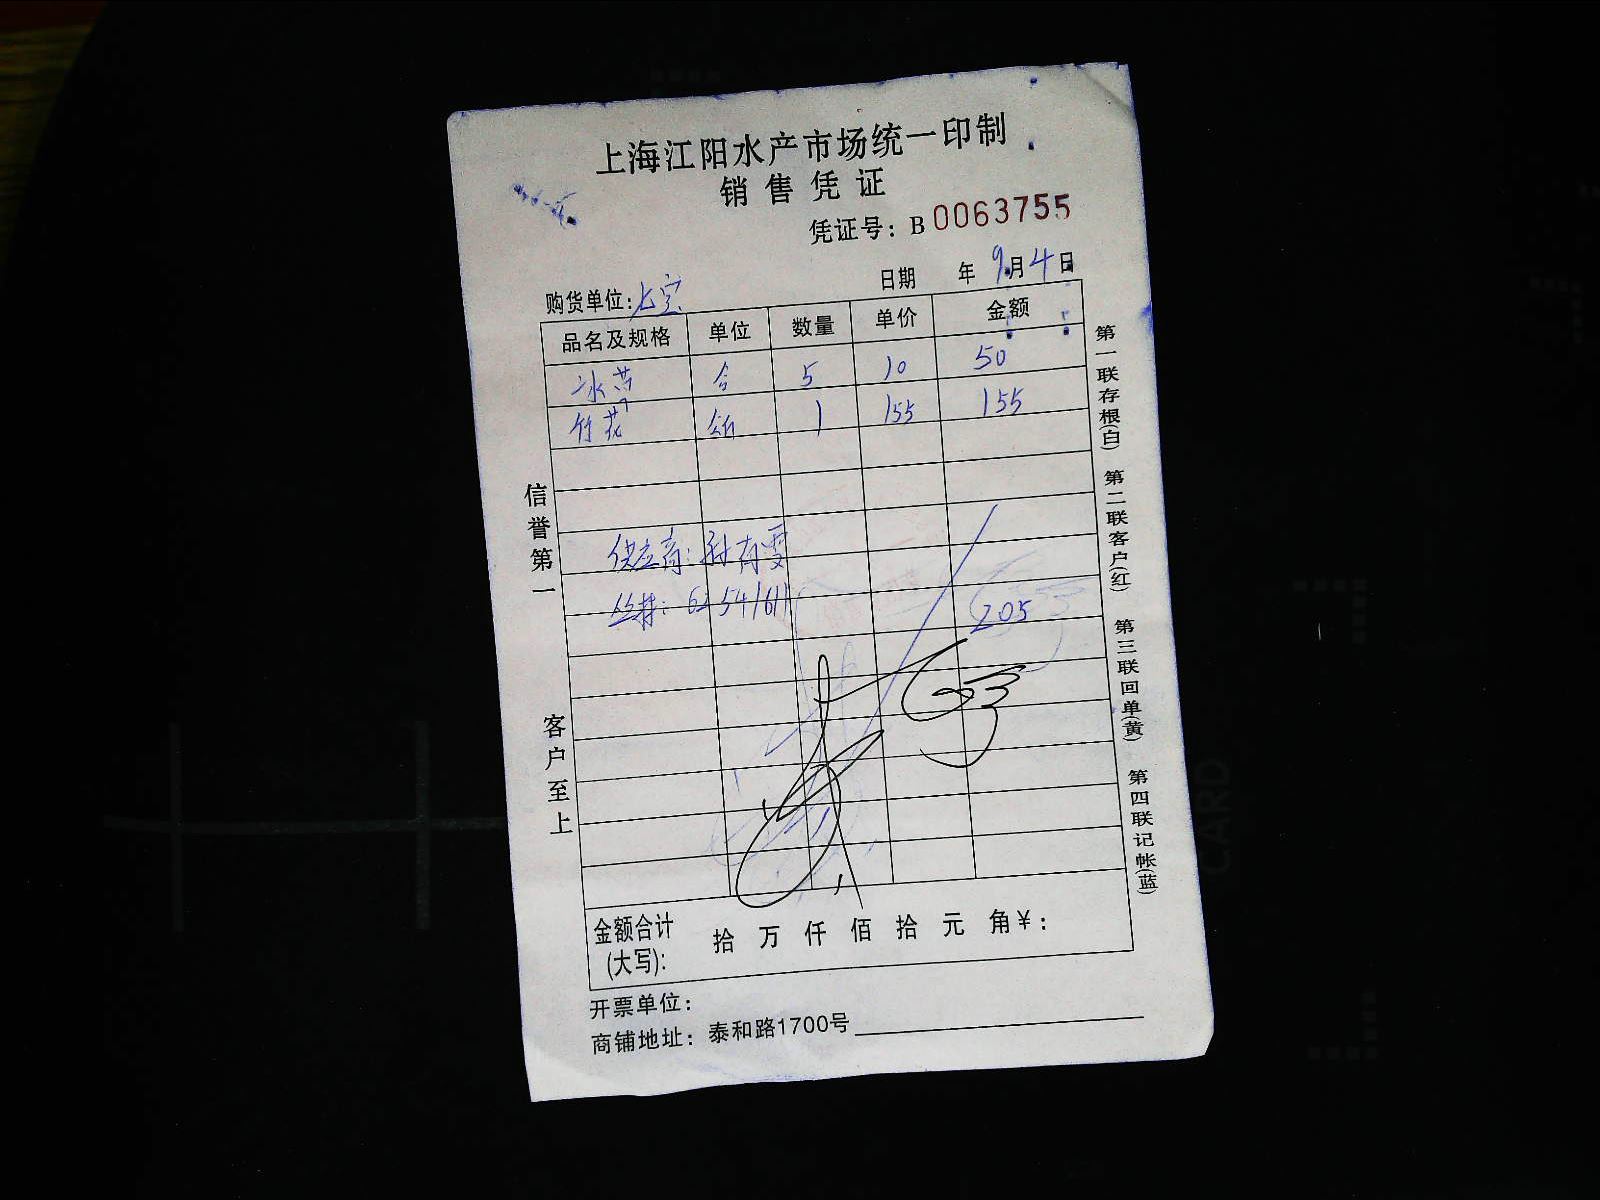 上海江阳水产市场统一印制
销售凭证
凭证号：B 0063755
日期 年 9月4日
购货单位：七宝
品名及规格 单位 数量 单价 金额
冰 5 10 50
竹花 1 155 155
供应商：孙有雯
205
信誉第一
客户至上
第一联存根(白) 第二联客户(红) 第三联回单(黄) 第四联记帐(蓝)
金额合计(大写)： 拾 万 仟 佰 拾 元 角 ¥：
开票单位：
商铺地址：泰和路1700号